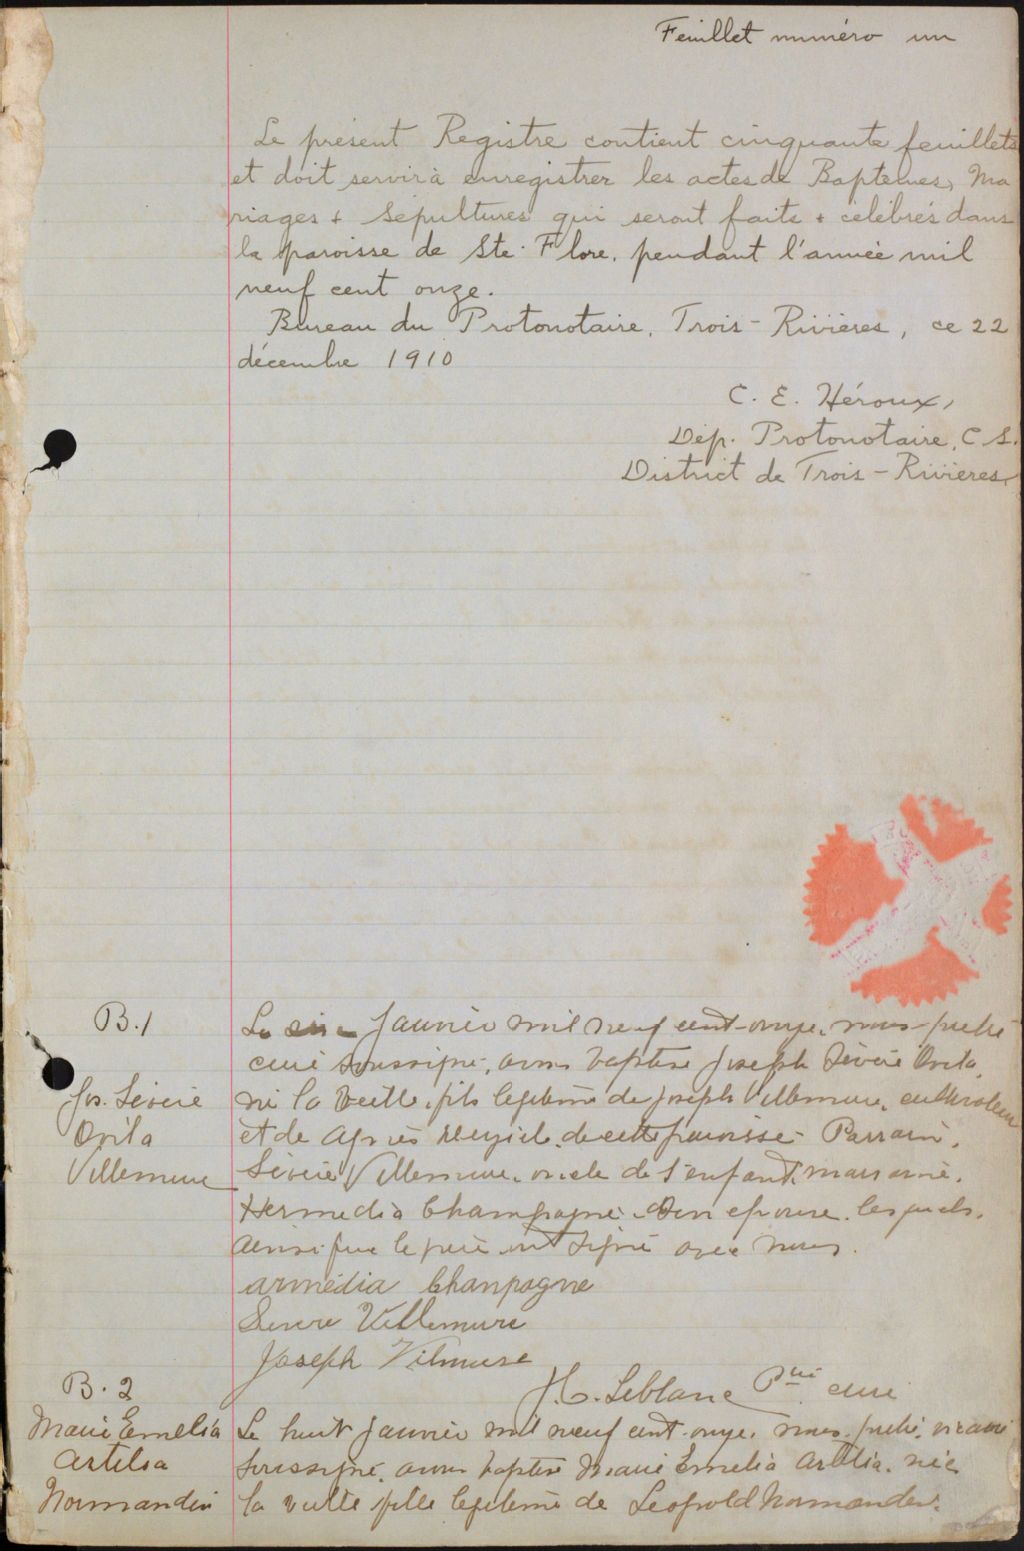 Feuillet numéro un
Le présent Registre contient cinquante feuillets
et doit servir à enregistrer les actes de Baptemes, Ma
riages & Sépultures qui seront faits & célébrés dans
la paroisse de Ste. Flore, pendant l'année mil
neuf cent onze.
Bureau du Protonotaire, Trois-Rivières, ce 22
décembre 1910
C. E. Héroux,
Dép. Protonotaire, C. S.
District de Trois-Rivières
B.1
Jos. Sévère
Ovila
Villemure
Le six Janvier mil neuf cent onze, nous prêtre
curé soussigné, avons baptisé Joseph Sévère Ovila,
né la veille, fils légitime de Joseph Villemure, cultivateur
et de de cette paroisse. Parrain,
Sévère Villemure, oncle de l'enfant, marraine,
Hermedia Champagne son épouse, lesquels,
ainsi que le père ont signé avec nous.
armédia Champagne
Severe Villemure
Joseph Vilmure
Leblanc Ptre curé
B.2
Marie Emelia
Artelia
Normandin
Le huit Janvier mil neuf cent onze, nous, prêtre, vicaire
soussigné, avons baptisé Marie Emelia Artelia, née
la veille fille légitime de Leopold Normandin